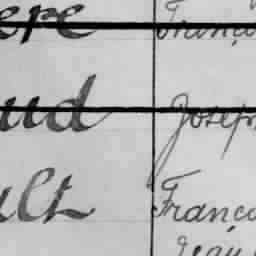 ere Franç
ud Joseph
ult Franço
Jean